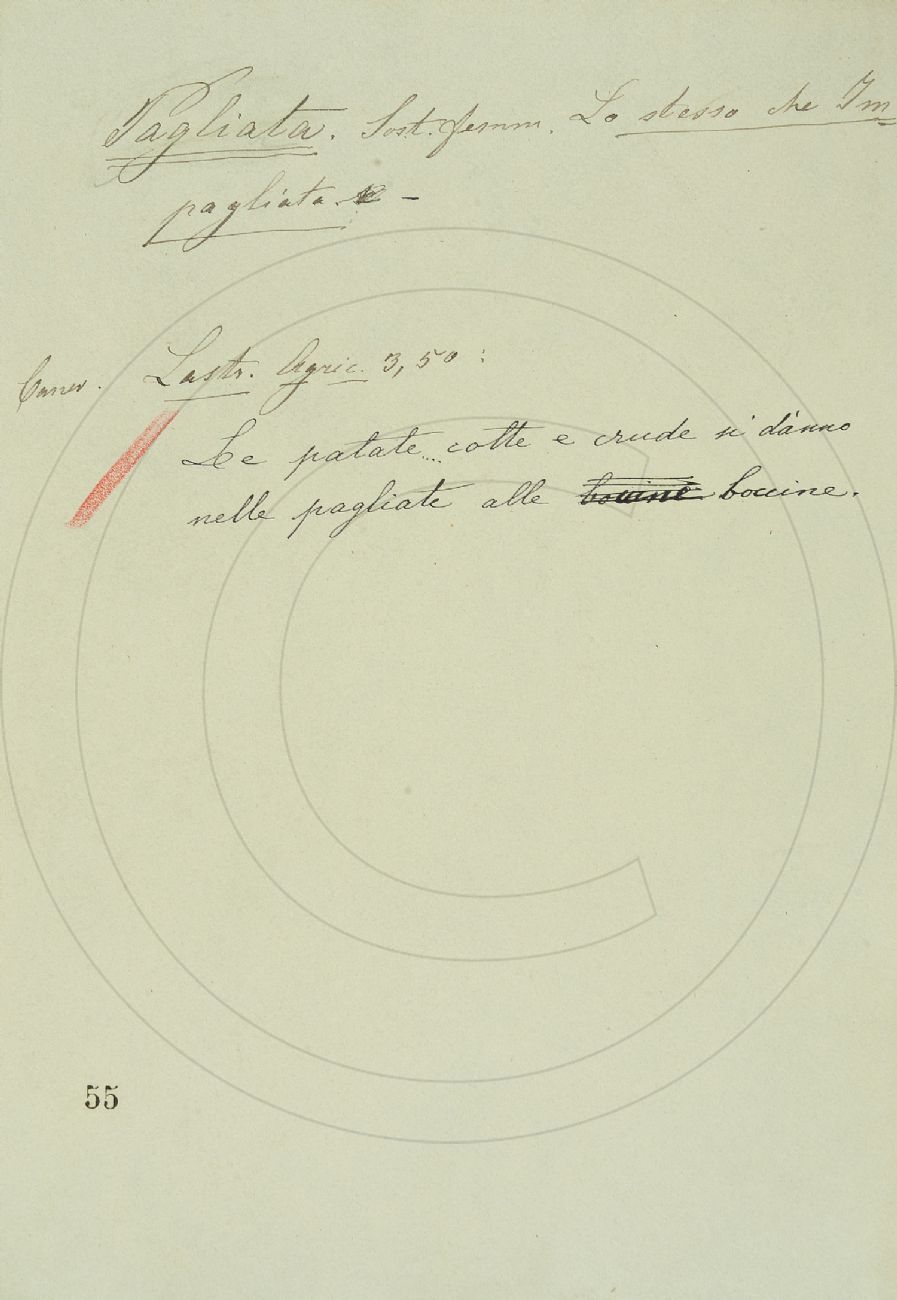 Pagliata. Sost. femm. Lo stesso che Im
pagliata. –
Lastr. Agric. 3, 50 :
Le patate... cotte e crude si dánno
nelle pagliate alle bovine bovine.
55